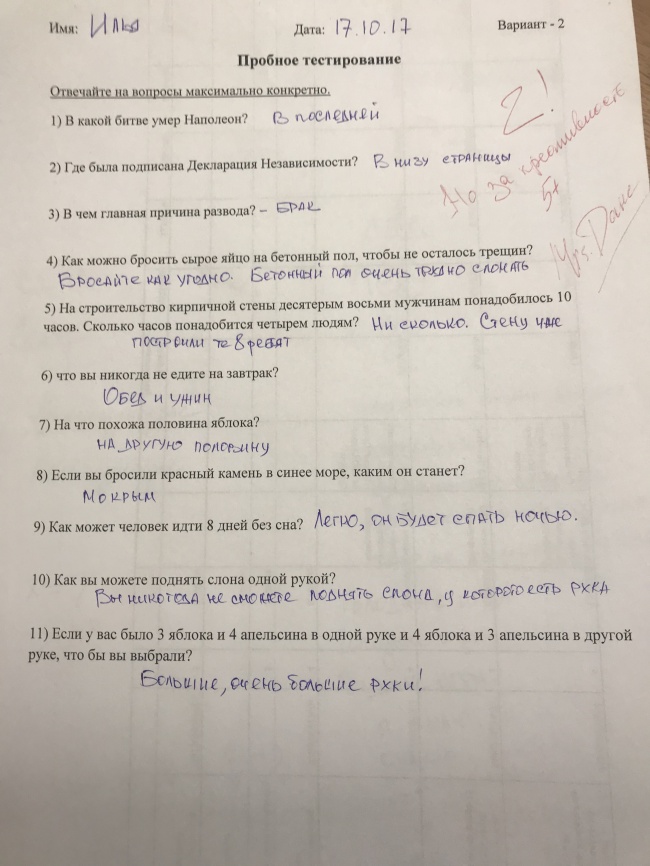 Имя: Илья Дата: 17.10.17 Вариант - 2
Пробное тестирование
Отвечайте на вопросы максимально конкретно.
1) В какой битве умер Наполеон? В последней
2) Где была подписана Декларация Независимости? В низу страницы
3) В чем главная причина развода? – Брак
4) Как можно бросить сырое яйцо на бетонный пол, чтобы не осталось трещин?
Бросайте как угодно. Бетонный пол очень трудно сломать
5) На строительство кирпичной стены десятерым восьми мужчинам понадобилось 10
часов. Сколько часов понадобится четырем людям? Ни сколько. Стену уже
построили те 8 ребят
6) что вы никогда не едите на завтрак?
Обед и ужин
7) На что похожа половина яблока?
на другую половину
8) Если вы бросили красный камень в синее море, каким он станет?
Мокрым
9) Как может человек идти 8 дней без сна? Легко, он будет спать ночью.
10) Как вы можете поднять слона одной рукой?
Вы никогда не сможете поднять слона, у которого есть рука
11) Если у вас было 3 яблока и 4 апельсина в одной руке и 4 яблока и 3 апельсина в другой
руке, что бы вы выбрали?
Большие, очень большие руки!
2!
Но за креативность
5+
Mrs. Данс